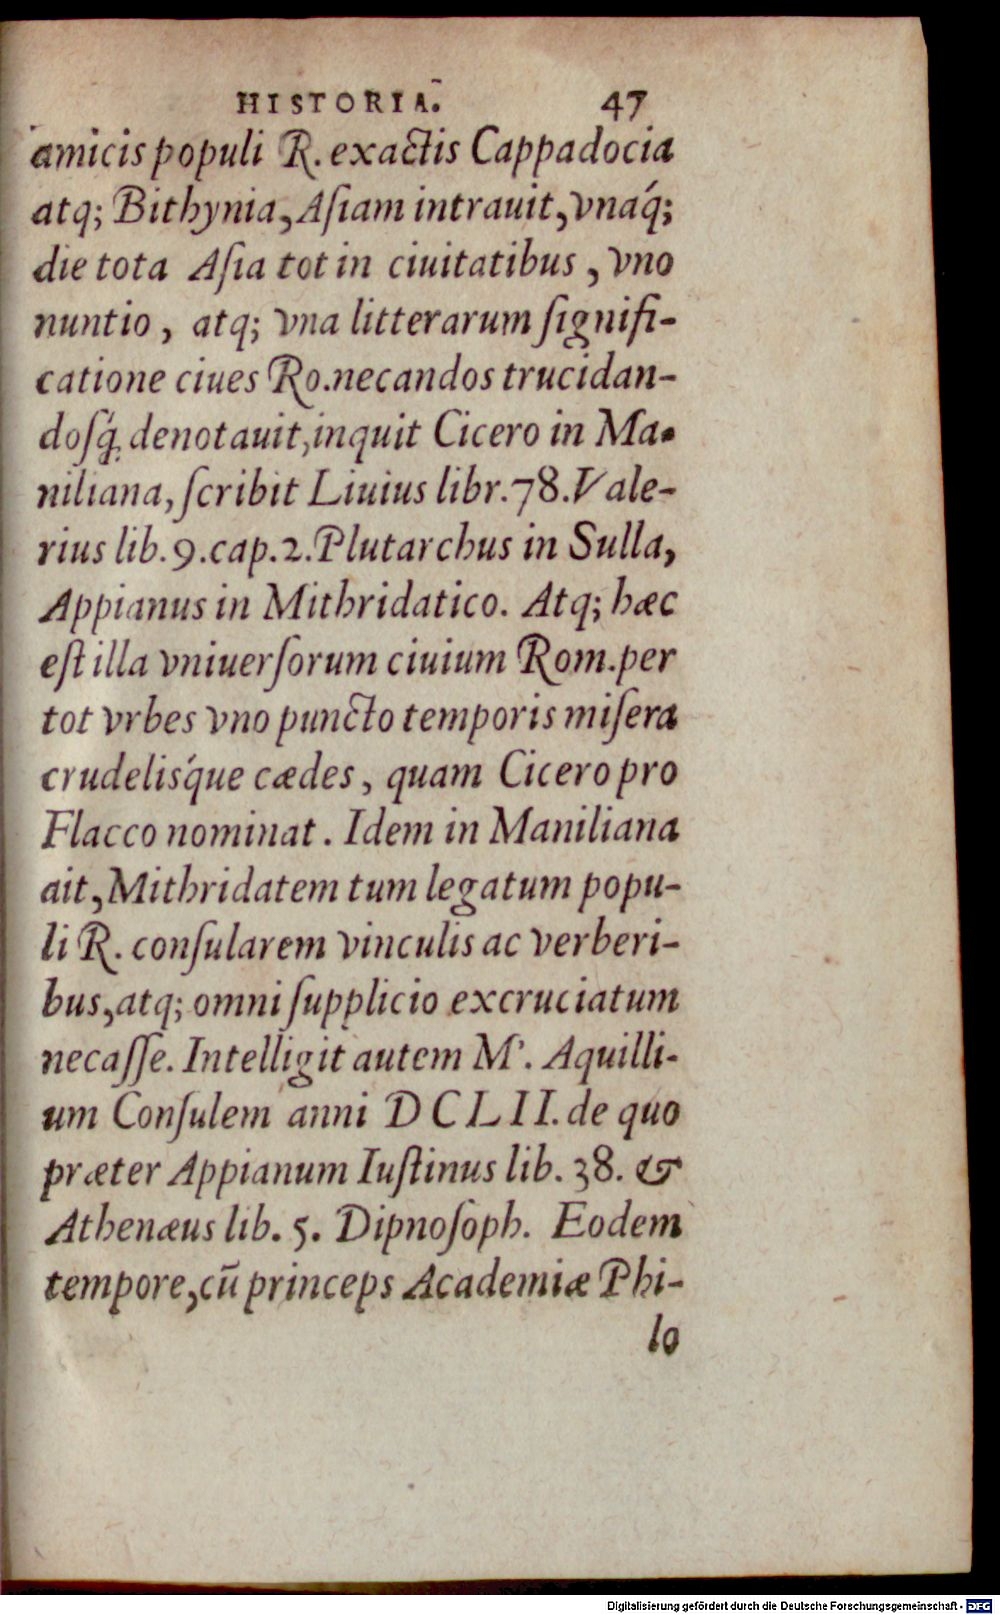 HISTORIA. 47
amicis populi R. exactis Cappadocia
atq; Bithynia, Aſiam intrauit, vnáq́;
die tota Aſia tot in ciuitatibus, vno
nuntio, atq; vna litterarum ſignifi-
catione ciues Ro. necandos trucidan-
doſq́; denotauit, inquit Cicero in Ma-
niliana, ſcribit Liuius libr. 78. Vale-
rius lib. 9. cap. 2. Plutarchus in Sulla,
Appianus in Mithridatico. Atq; hæc
eſt illa vniuerſorum ciuium Rom. per
tot vrbes vno puncto temporis miſera
crudeliśque cædes, quam Cicero pro
Flacco nominat. Idem in Maniliana
ait, Mithridatem tum legatum popu-
li R. conſularem vinculis ac verberi-
bus, atq; omni ſupplicio excruciatum
necaſſe. Intelligit autem M'. Aquilli-
um Conſulem anni DCLII. de quo
præter Appianum Iuſtinus lib. 38. &
Athenæus lib. 5. Dipnoſoph. Eodem
tempore, cū princeps Academiæ Phi-
lo
Digitalisierung gefördert durch die Deutsche Forschungsgemeinschaft - DFG